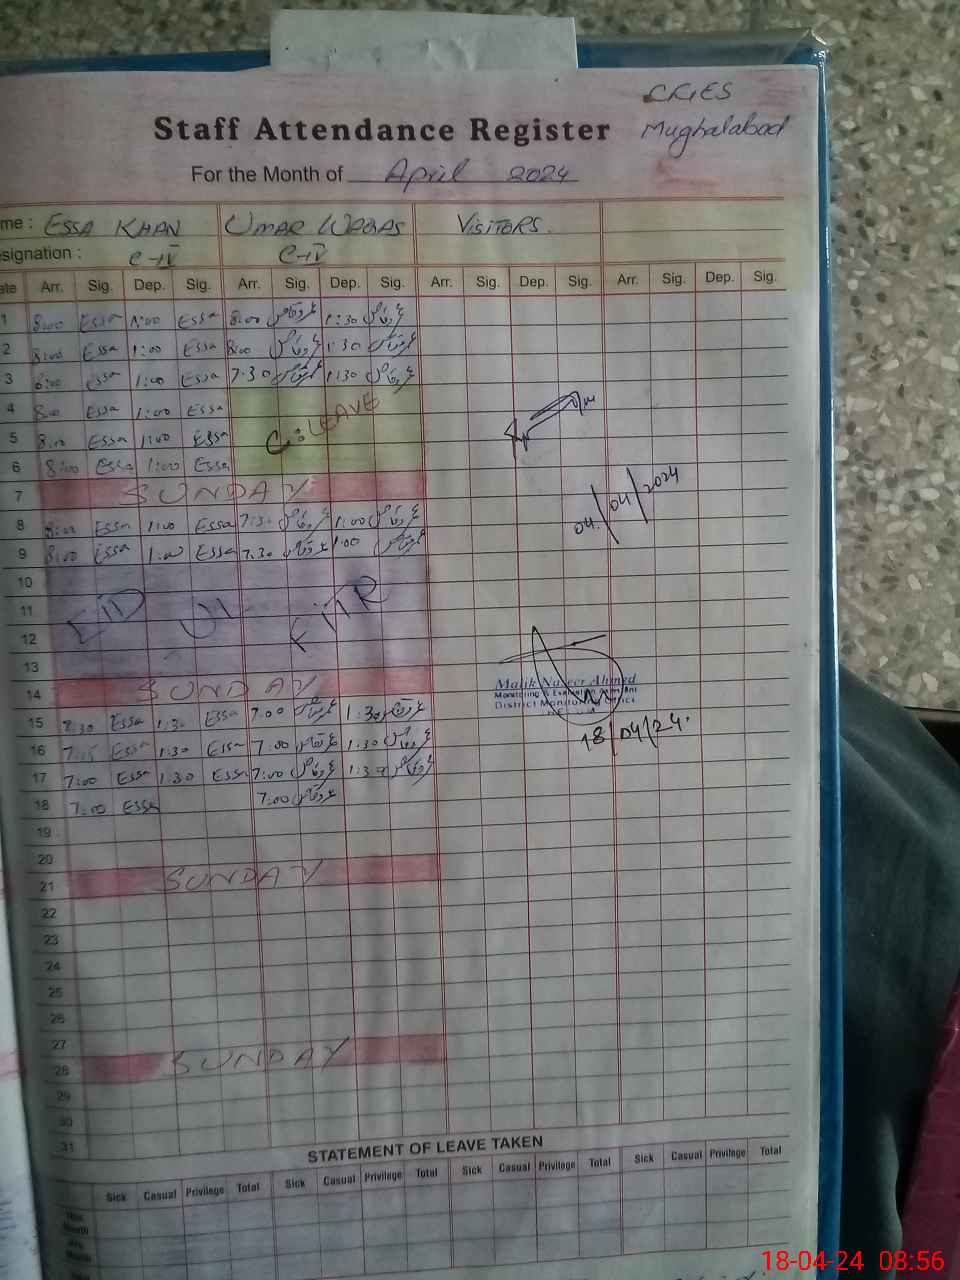 CKIES
Staff Attendance Register Mughalabad
For the Month of April 2024
me : ESSA KHAN UMAR WAQAS VISITORS.
esignation : C-IV C-IV
ate Arr. Sig. Dep. Sig. Arr. Sig. Dep. Sig. Arr. Sig. Dep. Sig. Arr. Sig. Dep. Sig.
1 8:00 Essa 1:00 Essa 8:00 عمروقاص 1:30 عمروقاص
2 8:00 Essa 1:00 Essa 8:00 عمروقاص 1:30 عمروقاص
3 8:00 Essa 1:00 Essa 7:30 عمروقاص 1:30 عمروقاص
4 8:00 Essa 1:00 Essa
C: LEAVE
5 8:00 Essa 1:00 Essa
6 8:00 Essa 1:00 Essa
7 SUNDAY
04/04/2024
8 8:00 Essa 1:00 Essa 7:30 عمروقاص 1:00 عمروقاص
9 8:00 Essa 1:00 Essa 7:30 عمروقاص 1:00 عمروقاص
10
11 EID UL FITR
12
13
14 SUNDAY
Malik Naseer Ahmed
Monitoring & Evaluation Assistant
District Monitoring Office
15 7:30 Essa 1:30 Essa 7:00 عمروقاص 1:30 عمروقاص
18/04/24.
16 7:15 Essa 1:30 Essa 7:00 عمروقاص 1:30 عمروقاص
17 7:00 Essa 1:30 Essa 7:00 عمروقاص 1:30 عمروقاص
18 7:00 Essa 7:00 عمروقاص
19
20
21 SUNDAY
22
23
24
25
26
27
28 SUNDAY
29
30
31
STATEMENT OF LEAVE TAKEN
Sick Casual Privilege Total Sick Casual Privilege Total Sick Casual Privilege Total Sick Casual Privilege Total
Month
Month
18-04-24 08:56